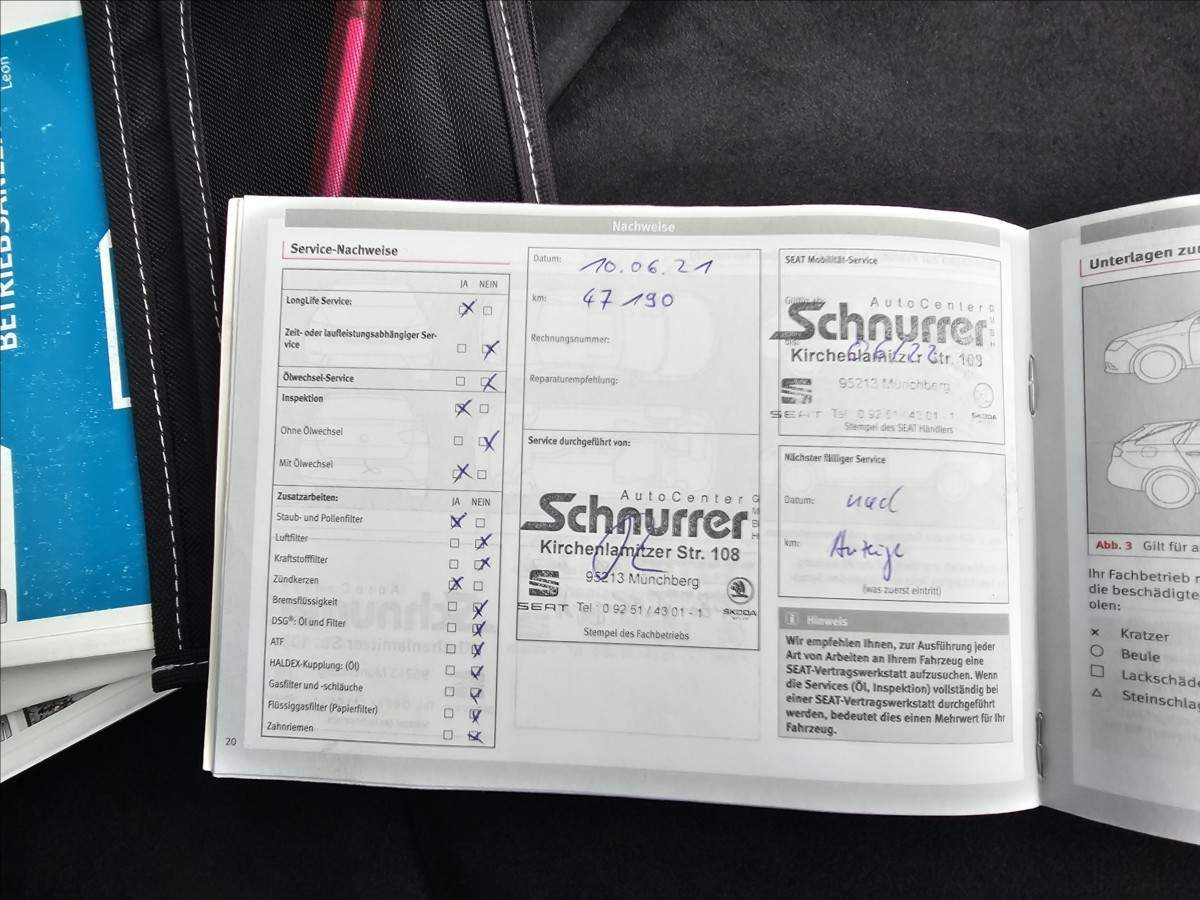 Leon
Nachweise
Service-Nachweise
JA NEIN
LongLife Service:
Zeit- oder laufleistungsabhängiger Ser-
vice
Ölwechsel-Service
Inspektion
Ohne Ölwechsel
Mit Ölwechsel
Zusatzarbeiten: JA NEIN
Staub- und Pollenfilter
Luftfilter
Kraftstofffilter
Zündkerzen
Bremsflüssigkeit
DSG®: Öl und Filter
ATF
HALDEX-Kupplung: (Öl)
Gasfilter und -schläuche
Flüssiggasfilter (Papierfilter)
Zahnriemen
20
Datum: 10.06.21
km: 47 190
Rechnungsnummer:
Reparaturempfehlung:
Service durchgeführt von:
AutoCenter GMBH
Schnurrer
Kirchenlamitzer Str. 108
95213 Münchberg
SEAT Tel 0 92 51 / 43 01 - 1 SKODA
Stempel des Fachbetriebs
SEAT Mobilität-Service
AutoCenter GMBH
Schnurrer
Kirchenlamitzer Str. 108
06/22
95213 Münchberg
SEAT Tel 0 92 51 / 43 01 - 1 SKODA
Stempel des SEAT Händlers
Nächster fälliger Service
Datum: nach
km: Anzeige
(was zuerst eintritt)
i Hinweis
Wir empfehlen Ihnen, zur Ausführung jeder
Art von Arbeiten an Ihrem Fahrzeug eine
SEAT-Vertragswerkstatt aufzusuchen. Wenn
die Services (Öl, Inspektion) vollständig bei
einer SEAT-Vertragswerkstatt durchgeführt
werden, bedeutet dies einen Mehrwert für Ihr
Fahrzeug.
Unterlagen zur
Abb. 3 Gilt für a
Ihr Fachbetrieb
die beschädigte
olen:
× Kratzer
○ Beule
□ Lackschäde
△ Steinschlag